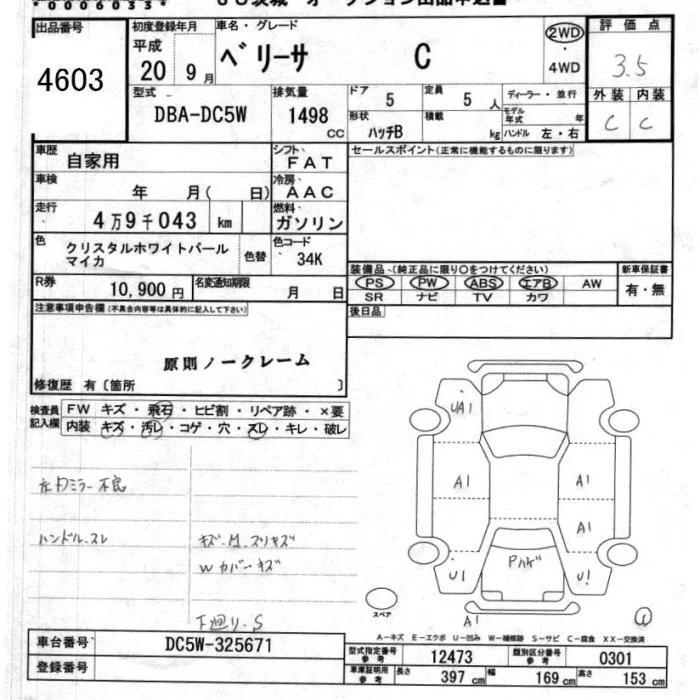 *0006033*
出品番号 初度登録年月 車名・グレード 2WD 評価点
4603 平成 20 9月 ベリーサ C ・ 4WD 3.5
型式 排気量 ドア 定員 ディーラー・並行 外装 内装
DBA-DC5W 1498 CC 5 5人 モデル年式 年 C C
形状 ハッチB 積載 kg ハンドル 左・右
車歴 自家用 シフト FAT セールスポイント(正常に機能するものに限ります)
車検 年 月( 日) 冷房 AAC
走行 4万9千043 km 燃料 ガソリン
色 クリスタルホワイトパール 色替 色コード 34K
マイカ
装備品 (純正品に限り○をつけてください) 新車保証書
R券 10,900円 名変通知期限 月 日 PS PW ABS エアB AW 有・無
SR ナビ TV カワ
注意事項申告欄(不具合内容等は具体的に記入して下さい) 後日品
原則ノークレーム
修復歴 有〔箇所 〕
検査員 FW キズ・飛石・ヒビ割・リペア跡・×要
記入欄 内装 キズ・汚レ・コゲ・穴・スレ・キレ・破レ
UA1
A1 A1
A1
左ドミラー不良
ハンドル.スレ キズ.M.スリキズ
Wカバーキズ
Pハゲ
U1 U1
下廻り.S
スペア A1 4
A−キズ E−エクボ U−凹み W−補修跡 S−サビ C−腐食 XX−交換済
車台番号 DC5W-325671 型式指定番号 参考 12473 類別区分番号 参考 0301
登録番号 車庫証明用 参考 長さ 397 cm 幅 169 cm 高さ 153 cm